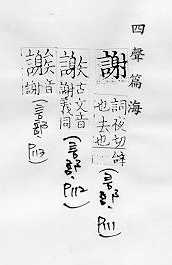 四聲篇海
謝
詞夜切
也去也
(言部. P111)
古文音
謝義同
(言部. P112)
音
謝
(言部. P113)